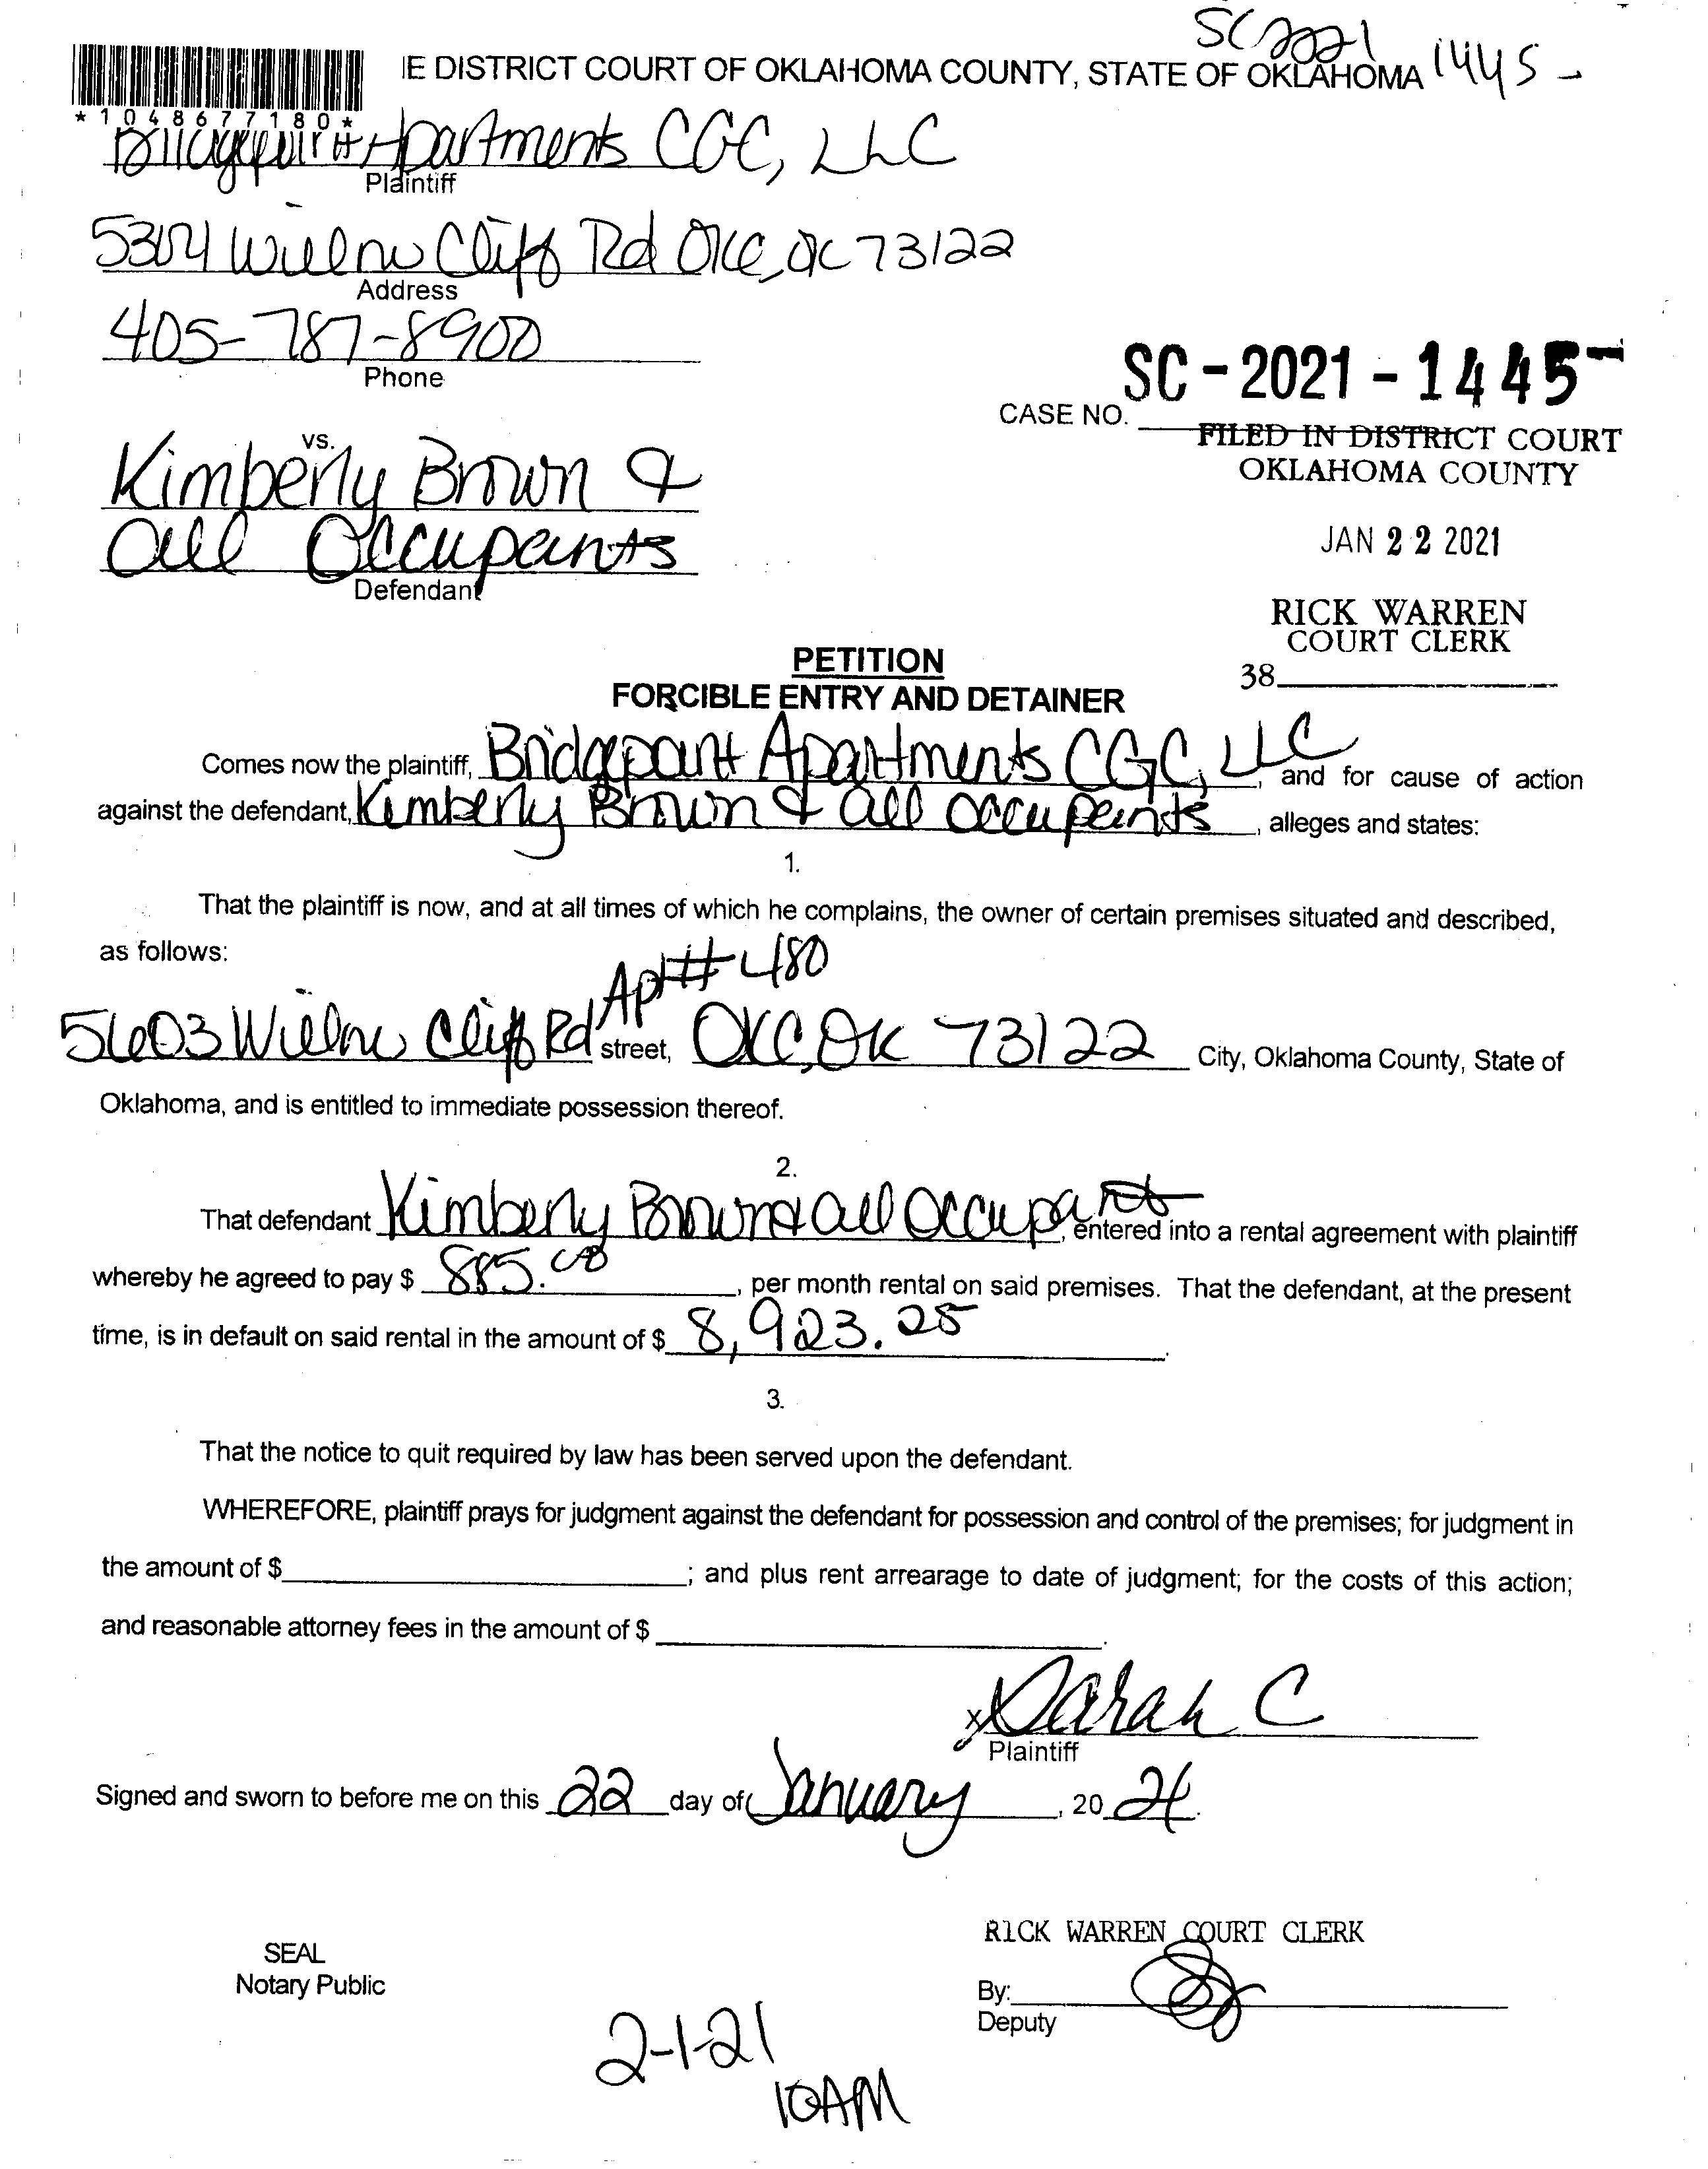 SC2021 1445 -
IE DISTRICT COURT OF OKLAHOMA COUNTY, STATE OF OKLAHOMA
*1048677180*
Apartments CGC, LLC
Plaintiff
Willow Cliff Rd OKC, OK 73122
Address
405-787-8900
Phone
SC-2021-1445-
CASE NO.
FILED IN DISTRICT COURT
OKLAHOMA COUNTY
vs.
Kimberly Brown &
all Occupants
Defendant
JAN 22 2021
RICK WARREN
COURT CLERK
38
PETITION
FORCIBLE ENTRY AND DETAINER
Comes now the plaintiff, Bridgepoint Apartments CGC, LLC, and for cause of action
against the defendant, Kimberly Brown & all occupants, alleges and states:
1.
That the plaintiff is now, and at all times of which he complains, the owner of certain premises situated and described,
as follows:
Apt# 480
5603 Willow Cliff Rd street, OKC, OK 73122 City, Oklahoma County, State of
Oklahoma, and is entitled to immediate possession thereof.
2.
That defendant Kimberly Brown & all Occupants, entered into a rental agreement with plaintiff
whereby he agreed to pay $ 885.00, per month rental on said premises. That the defendant, at the present
time, is in default on said rental in the amount of $ 8,923.25.
3.
That the notice to quit required by law has been served upon the defendant.
WHEREFORE, plaintiff prays for judgment against the defendant for possession and control of the premises; for judgment in
the amount of $; and plus rent arrearage to date of judgment; for the costs of this action;
and reasonable attorney fees in the amount of $.
x Sarah C
Plaintiff
Signed and sworn to before me on this 22 day of January, 20 21.
RICK WARREN COURT CLERK
SEAL
Notary Public
By:
Deputy
2-1-21
10AM